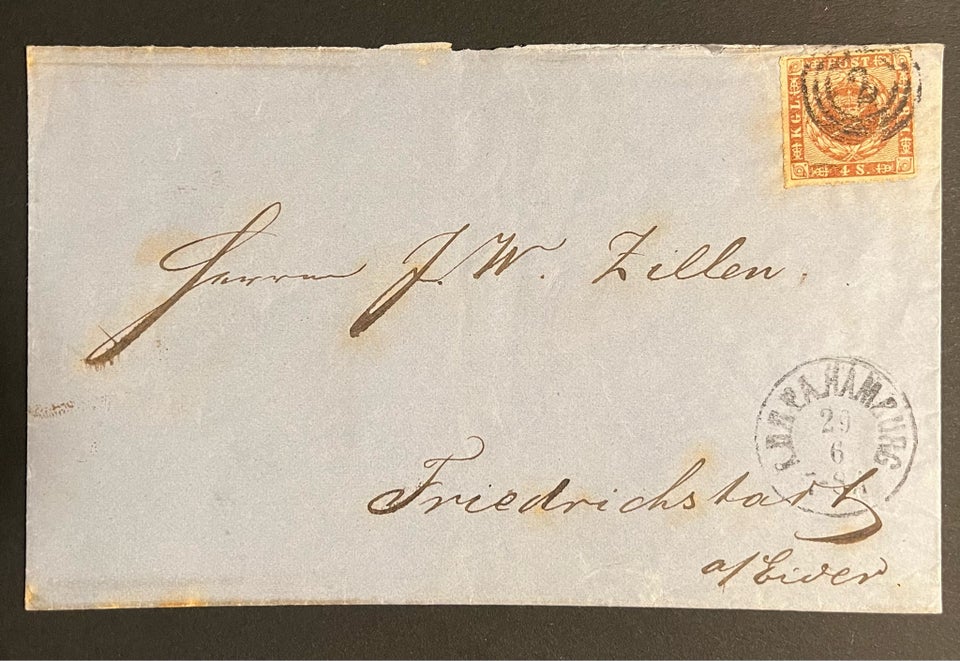 POST
KGL
4 S.
2
Herrn J. W. Zillen.
HAMBURG
29
6
Friedrichstadt
a/Eider.